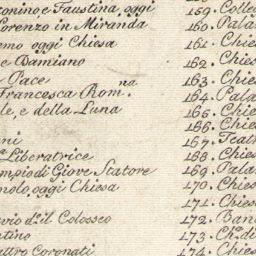 onino e Faustina, oggi
Lorenzo in Miranda
emo oggi Chiesa
e Damiano
Pace
Francesca Rom.na
le, e della Luna
ni
a Liberatrice
mpio di Giove Statore
molo, oggi Chiesa
vio d.il Colosseo
ntino
attro Coronati
159. Colle
160. Pala
161. Chies
162. Chies
163. Chies
164. Pala
165. Chies
166. Chies
167. Teatr
168. Chies
169. Pala
170. Chies
171. Chies
172. Ban
173. Ch.a di
174. Chies